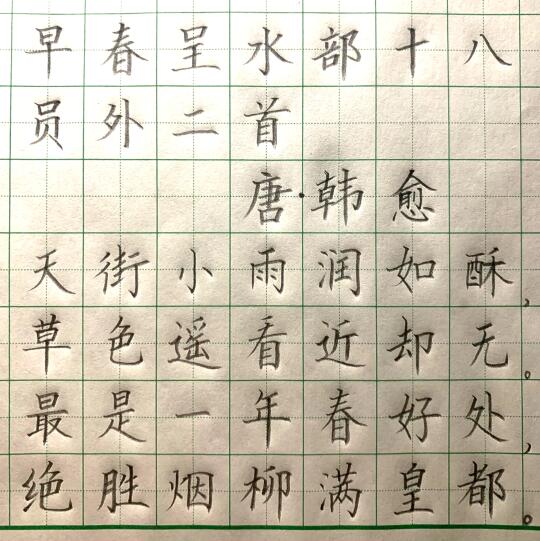 早春呈水部十八
员外二首
唐·韩愈
天街小雨润如酥,
草色遥看近却无。
最是一年春好处,
绝胜烟柳满皇都。